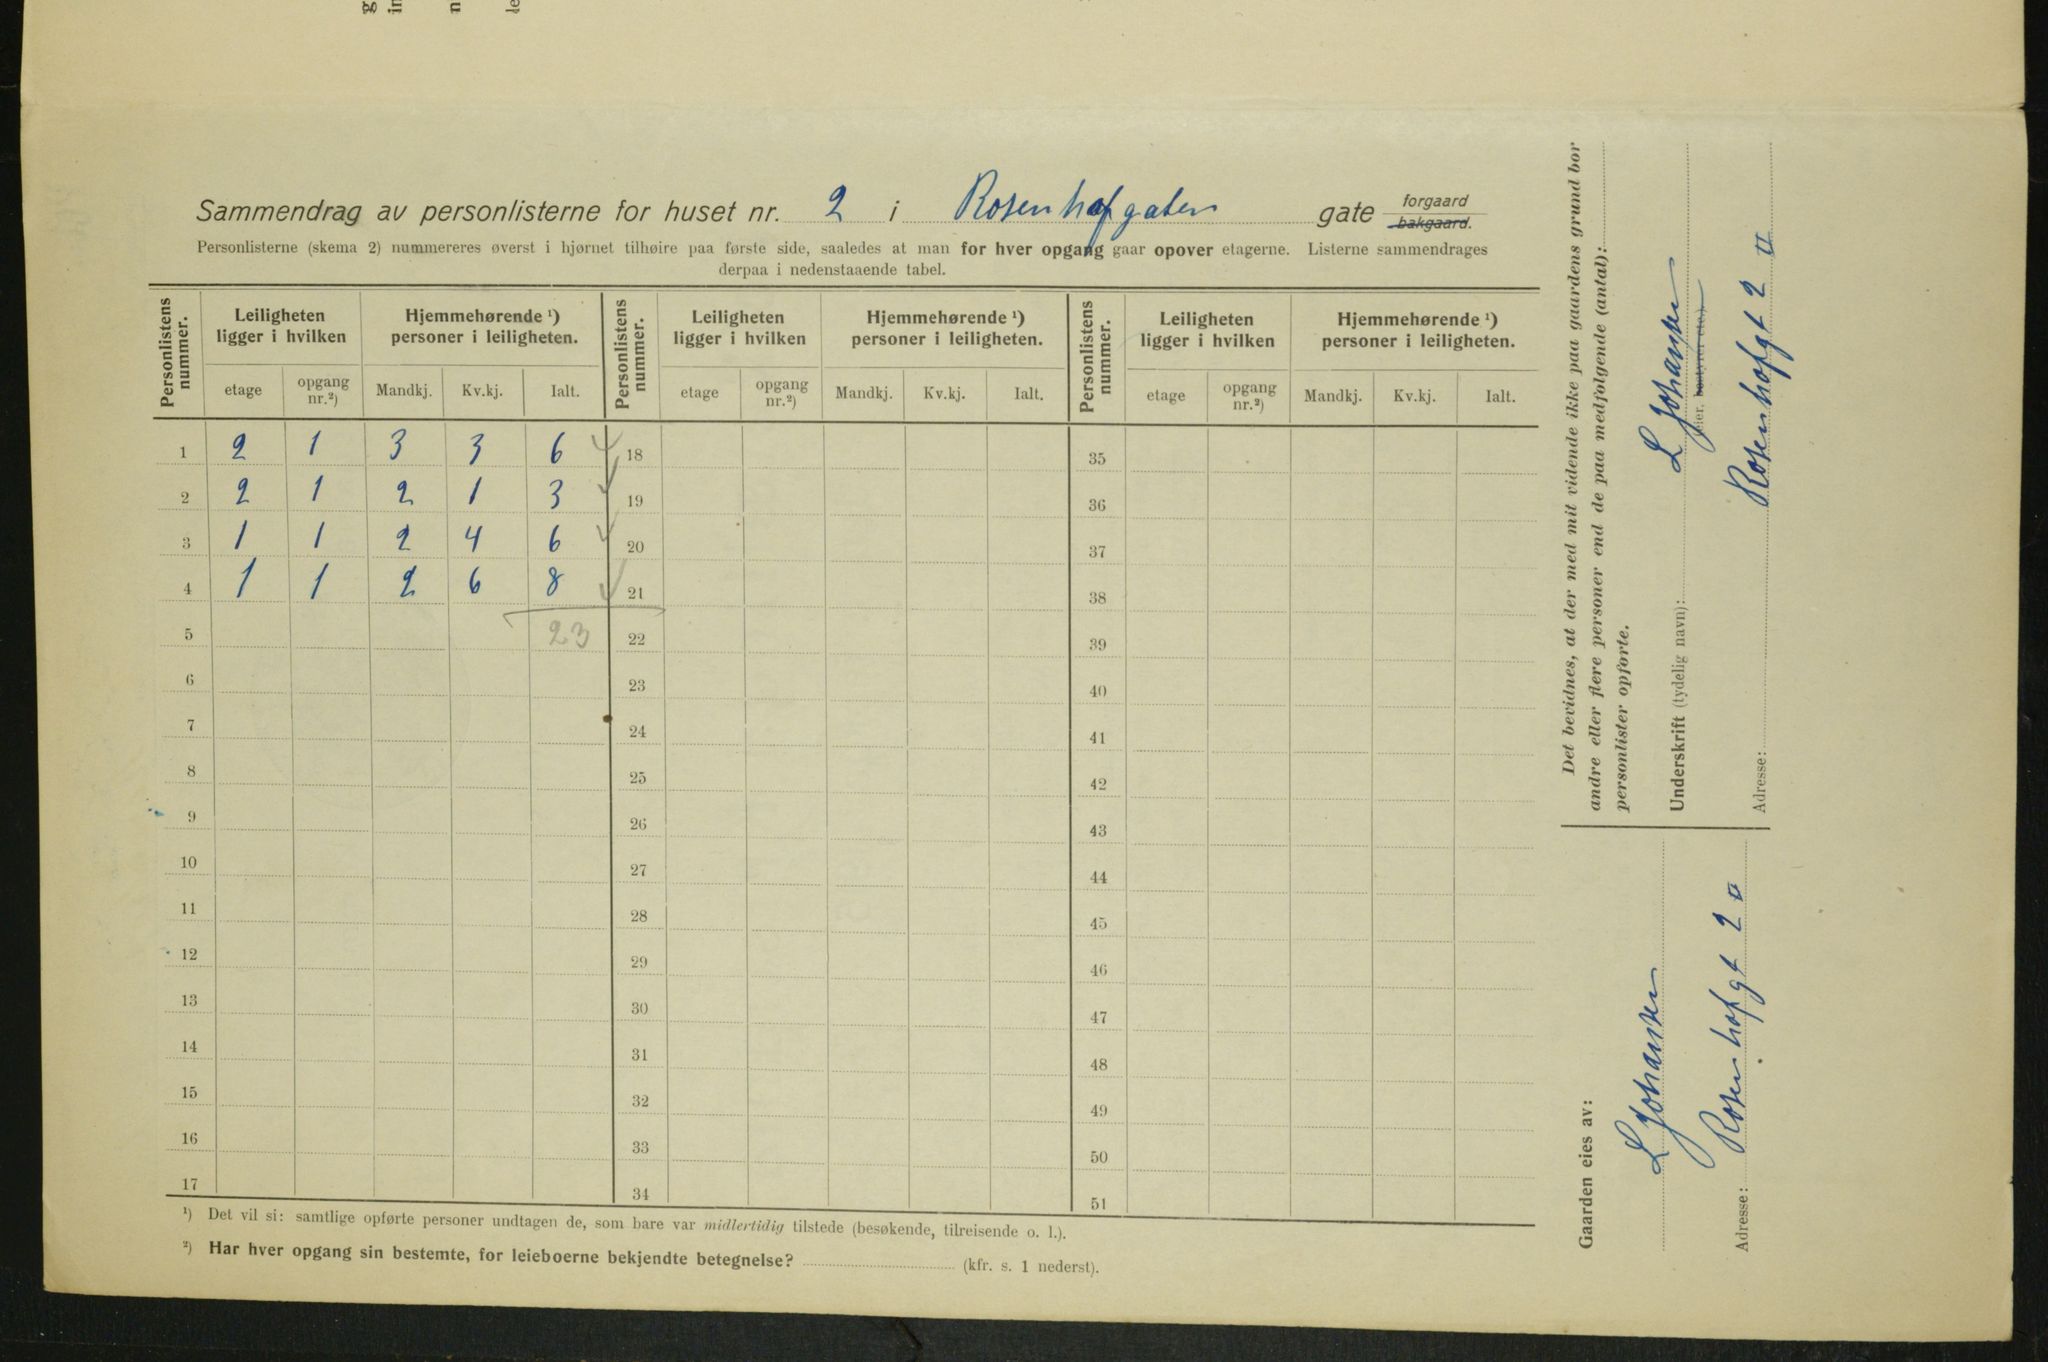 Sammendrag av personlisterne for huset nr. 2 i Rosenhofgaten gate forgaard
bakgaard.
Personlisterne (skema 2) nummereres øverst i hjørnet tilhøire paa første side, saaledes at man for hver opgang gaar opover etagerne. Listerne sammendrages
derpaa i nedenstaaende tabel.
Personlistens nummer. Leiligheten ligger i hvilken Hjemmehørende ¹) personer i leiligheten. Personlistens nummer. Leiligheten ligger i hvilken Hjemmehørende ¹) personer i leiligheten. Personlistens nummer. Leiligheten ligger i hvilken Hjemmehørende ¹) personer i leiligheten.
etage opgang nr.²) Mandkj. Kv.kj. Ialt. etage opgang nr.²) Mandkj. Kv.kj. Ialt. etage opgang nr.²) Mandkj. Kv.kj. Ialt.
1 2 1 3 3 6 18 35
2 2 1 2 1 3 19 36
3 1 1 2 4 6 20 37
4 1 1 2 6 8 21 38
5 23 22 39
6 23 40
7 24 41
8 25 42
9 26 43
10 27 44
11 28 45
12 29 46
13 30 47
14 31 48
15 32 49
16 33 50
17 34 51
¹) Det vil si: samtlige opførte personer undtagen de, som bare var midlertidig tilstede (besøkende, tilreisende o. l.).
²) Har hver opgang sin bestemte, for leieboerne bekjendte betegnelse? (kfr. s. 1 nederst).
Det bevidnes, at der med mit vidende ikke paa gaardens grund bor
andre eller flere personer end de paa medfølgende (antal):
personlister opførte.
Underskrift (tydelig navn): L Johansen
eier, bestyrer etc.)
Adresse: Rosenhofgt 2 II
Gaarden eies av:
L Johansen
Adresse: Rosenhofgt 2 II